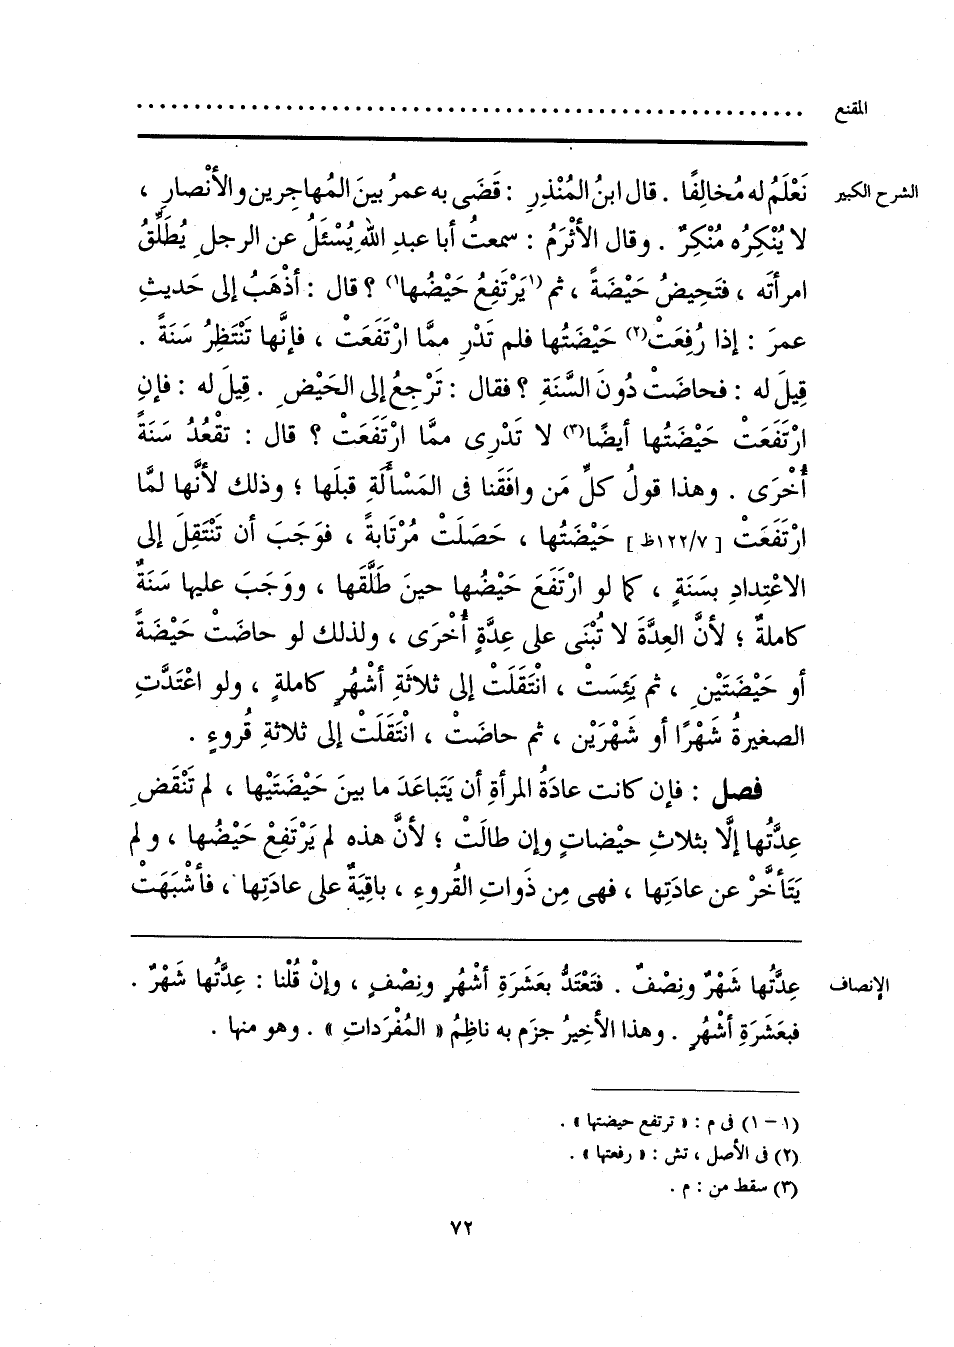 المقنع ........................................................
الشرح الكبير نَعْلَمُ له مُخالِفًا . قال ابنُ المُنْذِرِ : قَضَى به عمرُ بينَ المُهاجرين والأنْصارِ ،
لا يُنْكِرُه مُنْكِرٌ . وقال الأثْرَمُ : سمعتُ أبا عبدِ اللهِ يُسْئَلُ عن الرجلِ يُطَلِّقُ
امرأتَه ، فتَحِيضُ حَيْضَةً ، ثم (١يَرْتَفِعُ حَيْضُها١) ؟ قال : أذْهَبُ إلى حَديثِ
عمرَ : إذا رُفِعَتْ(٢) حَيْضَتُها فلم تَدْرِ ممَّا ارْتَفَعَتْ ، فإنَّها تَنْتَظِرُ سَنَةً .
قِيلَ له : فحاضَتْ دُونَ السَّنَةِ ؟ فقال : تَرْجِعُ إلى الحَيْضِ . قِيلَ له : فإنِ
ارْتَفَعَتْ حَيْضَتُها أيضًا(٣) لا تَدْرِى ممَّا ارْتَفَعَتْ ؟ قال : تقْعُدُ سَنَةً
أُخْرَى . وهذا قولُ كلِّ مَن وافَقَنا فى المَسْألَةِ قبلَها ؛ وذلك لأنَّها لمَّا
ارْتَفَعَتْ [ ١٢٢/٧ظ ] حَيْضَتُها ، حَصَلَتْ مُرْتابةً ، فوَجَبَ أن تَنْتَقِلَ إلى
الاعْتِدادِ بسَنَةٍ ، كما لو ارْتَفَعَ حَيْضُها حينَ طَلَّقَها ، ووَجَبَ عليها سَنَةٌ
كاملةٌ ؛ لأنَّ العِدَّةَ لا تُبْنَى على عِدَّةٍ أُخْرَى ، ولذلك لو حاضَتْ حَيْضَةً
أو حَيْضَتَيْنِ ، ثم يَئِسَتْ ، انْتَقَلَتْ إلى ثلاثَةِ أشْهُرٍ كاملةٍ ، ولو اعْتَدَّتِ
الصغيرةُ شَهْرًا أو شَهْرَيْن ، ثم حاضَتْ ، انْتَقَلَتْ إلى ثلاثةِ قُروءٍ .
فصل : فإن كانت عادَةُ المرأةِ أن يَتَباعَدَ ما بينَ حَيْضَتَيْها ، لم تَنْقَضِ
عِدَّتُها إلَّا بثلاثِ حيْضاتٍ وإن طالَتْ ؛ لأنَّ هذه لم يَرْتَفِعْ حَيْضُها ، و لم
يَتَأخَّرْ عن عادَتِها ، فهى مِن ذَواتِ القُروءِ ، باقِيَةٌ على عادَتِها ، فأشْبَهَتْ
الإنصاف عِدَّتُها شَهْرٌ ونِصْفٌ . فتَعْتَدُّ بعَشَرَةِ أشْهُرٍ ونِصْفٍ ، وإنْ قُلْنا : عِدَّتُها شَهْرٌ .
فبعَشَرَةِ أشْهُرٍ . وهذا الأخِيرُ جزَم به ناظِمُ « المُفْرَداتِ » . وهو منها .
(١ – ١) فى م : « ترتفع حيضتها » .
(٢) فى الأصل ، تش : « رفعتها » .
(٣) سقط من : م .
٧٢